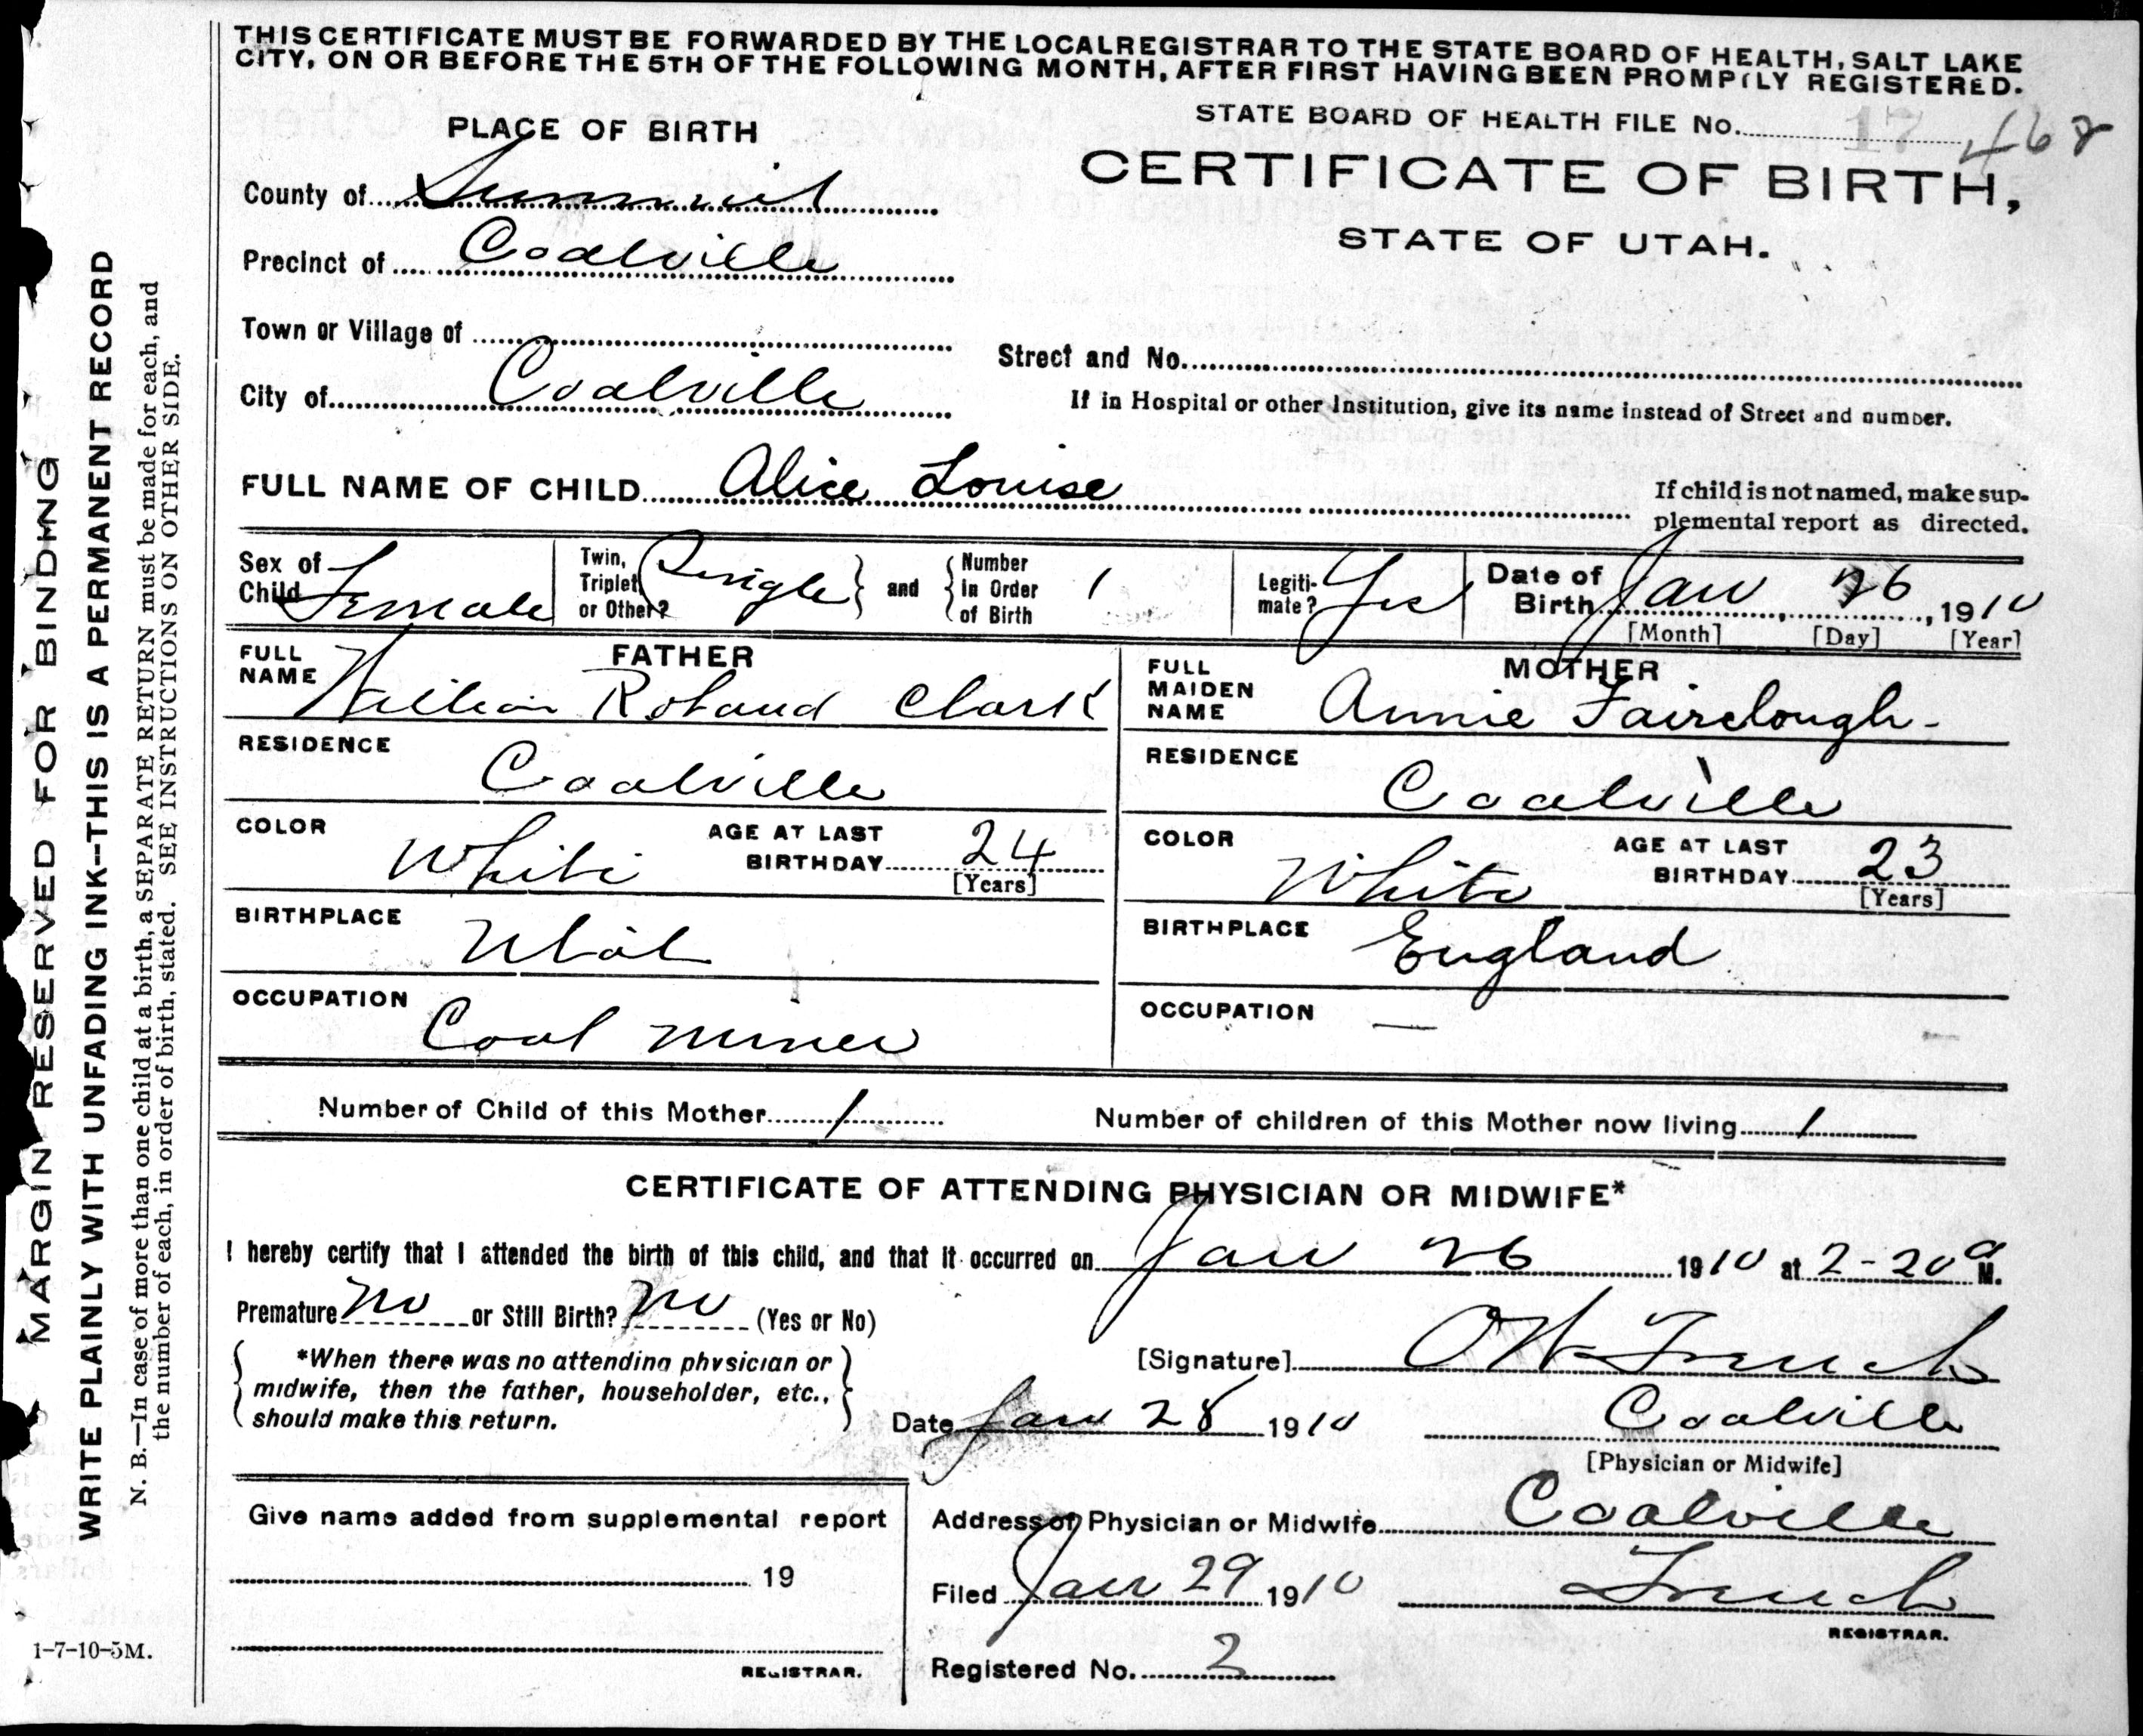 THIS CERTIFICATE MUST BE FORWARDED BY THE LOCAL REGISTRAR TO THE STATE BOARD OF HEALTH, SALT LAKE
CITY, ON OR BEFORE THE 5TH OF THE FOLLOWING MONTH, AFTER FIRST HAVING BEEN PROMPTLY REGISTERED.
STATE BOARD OF HEALTH FILE No. 17 468
PLACE OF BIRTH
CERTIFICATE OF BIRTH,
STATE OF UTAH.
County of Summit
Precinct of Coalville
Town or Village of
Street and No.
City of Coalville
If in Hospital or other Institution, give its name instead of Street and number.
FULL NAME OF CHILD Alice Louise
If child is not named, make sup-
plemental report as directed.
Sex of Child Female
Twin, Triplet or Other? Single
and
Number in Order of Birth 1
Legiti-mate? Yes
Date of Birth Jan 26, 1910
[Month] [Day] [Year]
FATHER
FULL NAME William Roland Clark
MOTHER
FULL MAIDEN NAME Annie Fairclough
RESIDENCE Coalville
RESIDENCE Coalville
COLOR White AGE AT LAST BIRTHDAY 24 [Years]
COLOR White AGE AT LAST BIRTHDAY 23 [Years]
BIRTHPLACE Utah
BIRTHPLACE England
OCCUPATION Coal miner
OCCUPATION —
Number of Child of this Mother 1
Number of children of this Mother now living 1
CERTIFICATE OF ATTENDING PHYSICIAN OR MIDWIFE*
I hereby certify that I attended the birth of this child, and that it occurred on Jan 26 1910 at 2-20 a M.
Premature No or Still Birth? No (Yes or No)
*When there was no attending physician or
midwife, then the father, householder, etc.,
should make this return.
[Signature] French
Date Jan 28 1910
Coalville
[Physician or Midwife]
Give name added from supplemental report
19
REGISTRAR.
Address of Physician or Midwife Coalville
Filed Jan 29 1910 French
REGISTRAR.
Registered No. 2
MARGIN RESERVED FOR BINDING
WRITE PLAINLY WITH UNFADING INK--THIS IS A PERMANENT RECORD
N. B.—In case of more than one child at a birth, a SEPARATE RETURN must be made for each, and
the number of each, in order of birth, stated. SEE INSTRUCTIONS ON OTHER SIDE.
1-7-10-5M.